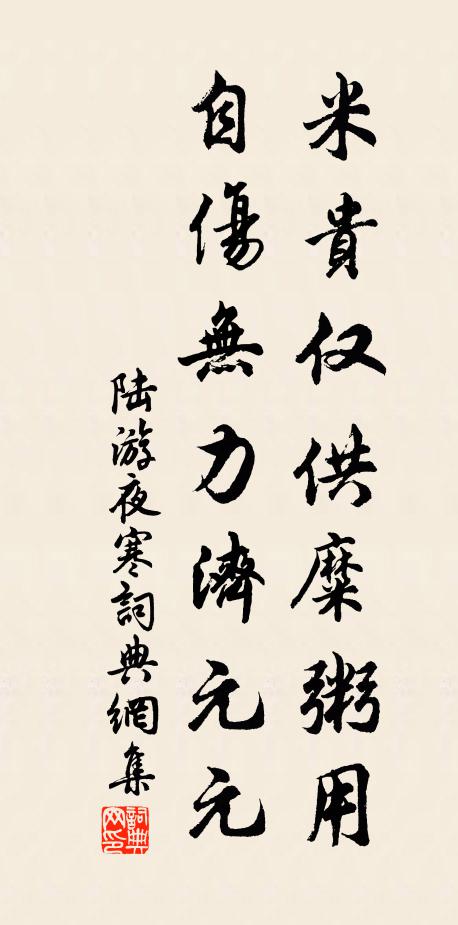 米貴仅供糜粥用
自傷無力濟元元
陆游夜寒詞典網集
詞典网印